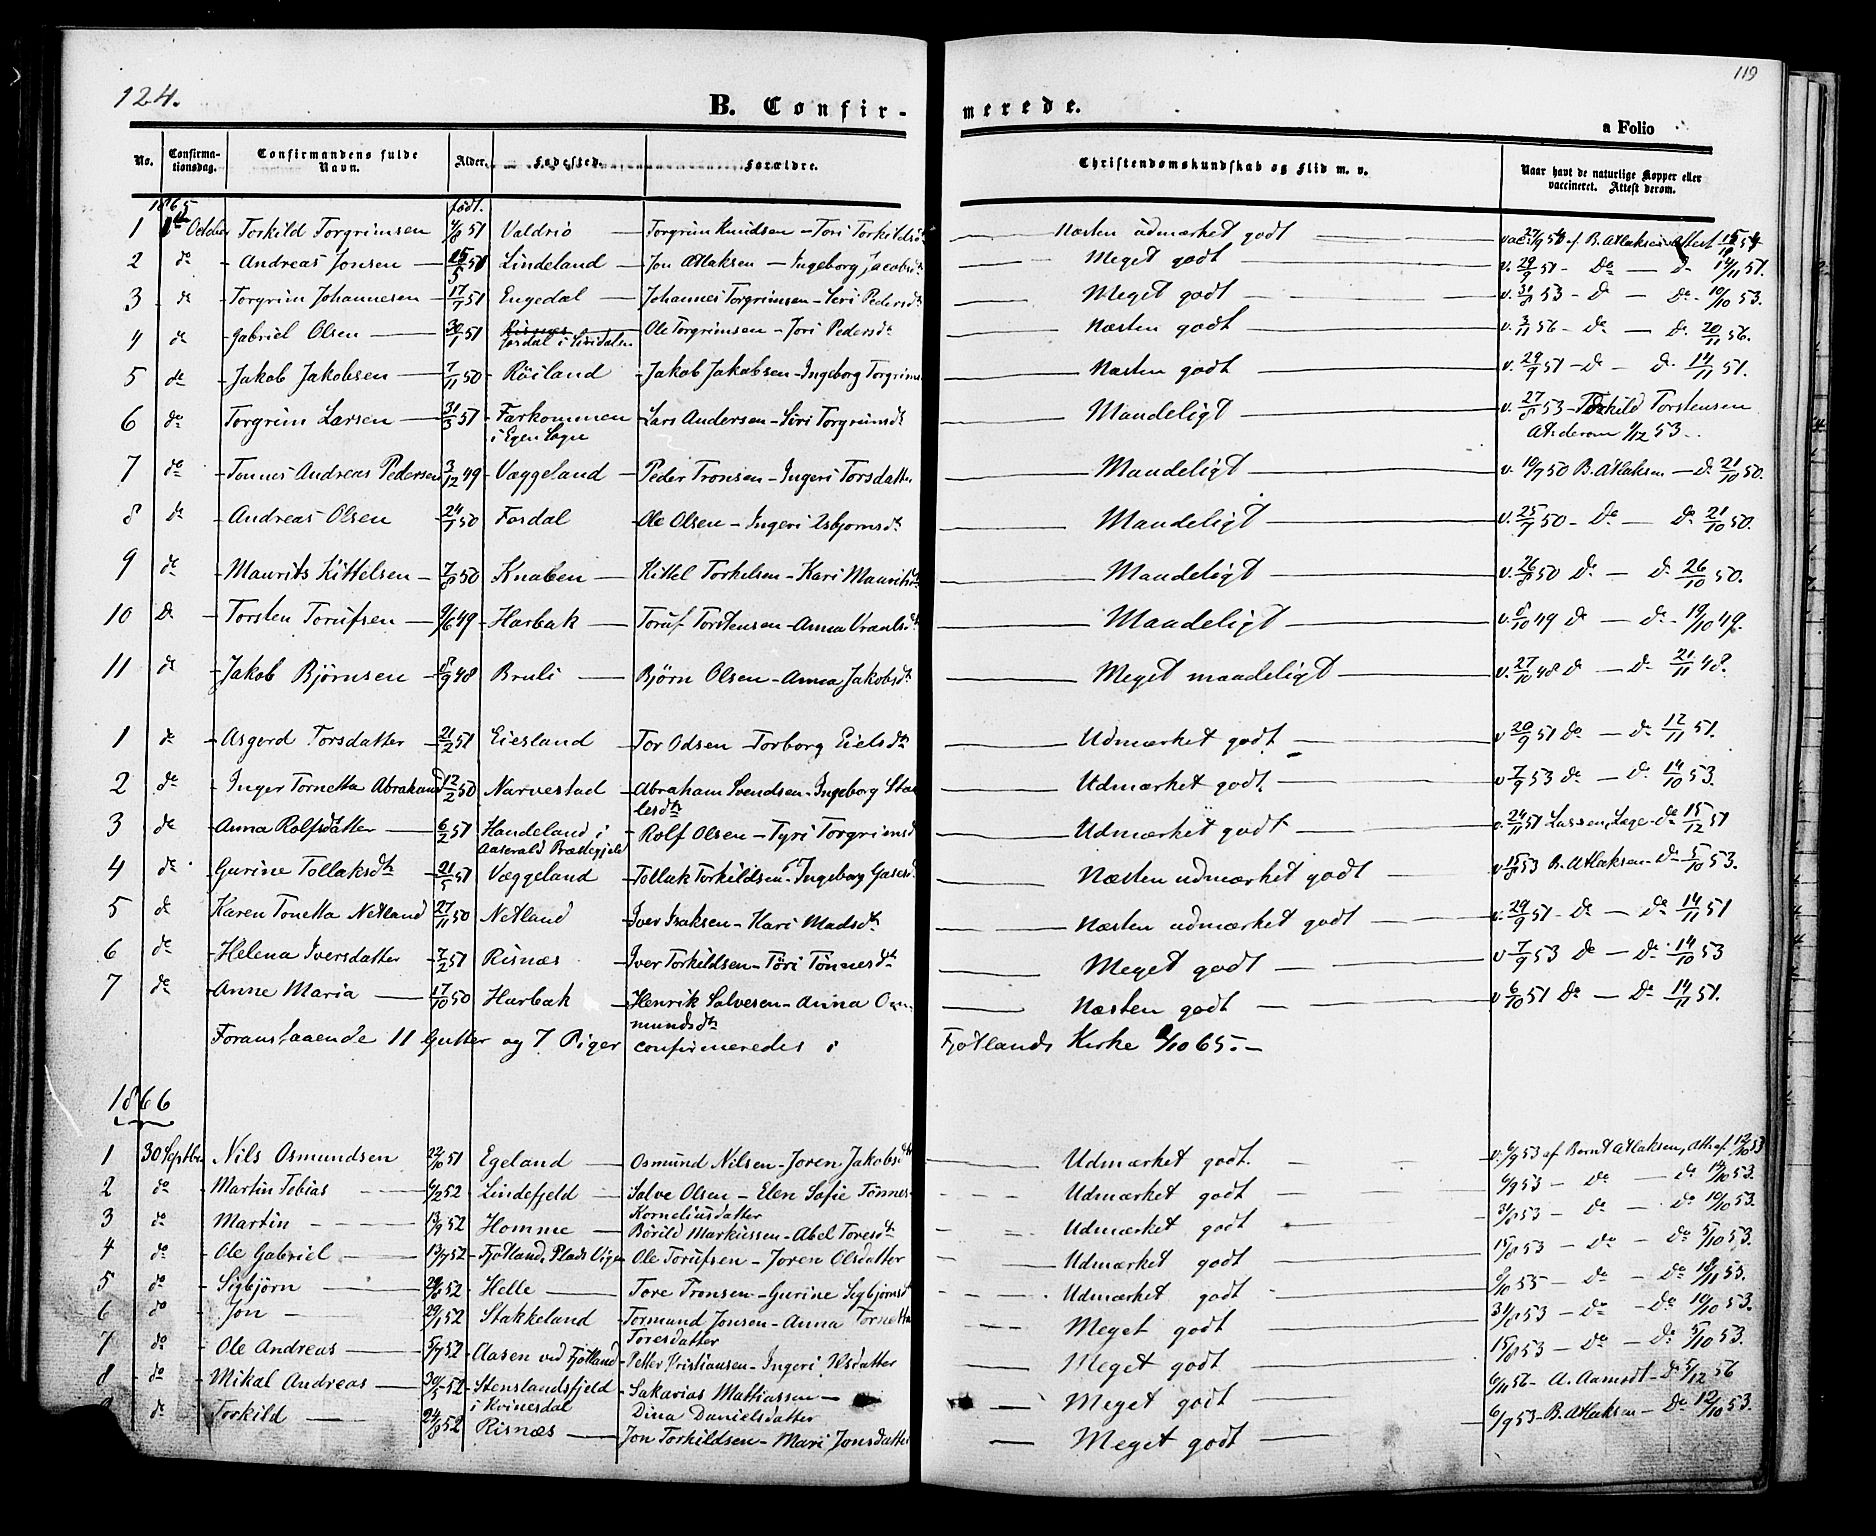 124.
119
B. Confir-merede.
a Folio
No. Confirma-tionsdag. Confirmandens fulde Navn. Alder. Fødested. Forældre. Christendomskundskab og Flid m. v. Naar havt de naturlige Kopper eller vaccineret. Attest derom.
1865 født.
1 1ste October Torkild Torgrimsen 4/8 51 Valdriø Torgrim Knudsen - Tori Torkildsdt Næsten udmærket godt vac. 27/9 54 af B. Atlaksen Attest 15/11 54
2 do Andreas Jonsen 15/5 51 Lindeland Jon Atlaksen - Ingeborg Jacobsdt Meget godt v. 29/9 51 - do - do 14/11 51.
3 do Torgrim Johannesen 17/7 51 Engedal Johannes Torgrimsen - Siri Pedersdt Meget godt v. 31/8 53 - do - do 10/10 53.
4 do Gabriel Olsen 30/1 51 Risnæs Josdal i Siredalen Ole Torgrimsen - Jori Pedersdt Næsten godt v. 3/11 56 - do - do 20/11 56.
5 do Jakob Jakobsen 7/11 50 Röiland Jakob Jakobsen - Ingeborg Torgrims Næsten godt v. 29/9 51 - do - do 14/11 51.
6 do Torgrim Larsen 31/3 51 Farkommen i Egen Sogn Lars Andersen - Siri Torgrimsdt Maadeligt v. 27/8 53 - Torkild Torstensen
At. derom 1/12 53.
7 do Tonnes Andreas Pedersen 3/12 49 Væggeland Peder Tronsen - Ingeri Torsdatter Maadeligt v. 10/9 50 B. Atlaksen - do 21/10 50.
8 do Andreas Olsen 24/1 50 Fosdal Ole Olsen - Ingeri Asbjornsdt Maadeligt v. 25/9 50 - do - do 21/10 50.
9 do Maurits Kittelsen 7/8 50 Knaben Kittel Torkelsen - Kari Mauritsdt Maadeligt v. 26/8 50 do - do 26/10 50.
10 do Torsten Torufsen 9/6 49 Harbak Toruf Torstensen - Anna Vraalsdt Maadeligt v. 8/10 49 do - do 19/10 49.
11 do Jakob Bjørnsen 8/9 48 Bruli Bjørn Olsen - Anna Jakobsdt Meget maadeligt v. 27/10 48 do - do 21/11 48.
1 do Asgerd Torsdatter 21/2 51 Eiesland Tor Odsen - Torborg Eielsdtr Udmærket godt v 20/9 51 do - do 12/11 51.
2 do Inger Tornetta Abrahamsd 12/2 50 Narvestad Abraham Svendsen - Ingeborg Staa-lesdtr Udmærket godt. v 7/9 53 do - do 14/10 53.
3 do Anna Rolfsdatter 6/2 51 Handeland i Aaserald Præstegjeld Rolf Olsen - Tyri Torgrimsd Udmærket godt v. 24/11 51 Lassen, Læge - do 15/12 51
4 do Gurine Tollaksdtr 21/5 51 Væggeland Tollak Torkildsen - Ingeborg Gasesdt Næsten udmærket godt v 15/8 53 B. Atlaksen - do 5/10 53.
5 do Karen Tonetta Netland 27/11 50 Netland Iver Isaksen - Kari Madsdt Næsten udmærket godt v. 29/9 51 - do - do 14/11 51
6 do Helena Iversdatter 7/2 51 Risnæs Iver Torkildsen - Töri Tönnesdt Meget godt v 7/9 53 do - do 14/10 53
7 do Anne Maria 17/10 50 Harbak Henrik Salvesen - Anna Os-mundsdtr Næsten godt v 6/10 51 do - do 14/11 51.
Foranstaaende 11 Gutter og 7 Piger confirmeredes i Fjotlands Kirke 1/10 65.
1866
1 30 Septbr Nils Osmundsen 22/10 51 Egeland Osmund Nilsen - Joren Jakobsdtr Udmærket godt. v. 6/9 53 af Bernt Atlaksen, Att. af 12/10 53
2 do Martin Tobias 6/2 52 Lindefjeld Salve Olsen - Elen Sofie Tönnes-Korneliusdatter Udmærket godt 6/9 53 - do - do 19/10 53.
3 do Martin 13/9 52 Homme Börild Markussen - Abel Toresdt Udmærket godt 31/8 53 - do - do 10/10 53.
4 do Ole Gabriel 13/7 52 Fjotland, Plads Vigen Ole Torufsen - Joren Olsdatter Udmærket godt 15/8 53 - do - do 5/10 53.
5 do Sigbjörn 29/8 52 Helle Tore Tronsen - Gurine Sigbjörnsd Udmærket godt 8/10 55 - do - do 18/11 53.
6 do Jon 29/1 52 Stakkeland Tormund Jonsen - Anna Tornetta Toresdatter Meget godt 31/8 53 - do - do 10/10 53.
7 do Ole Andreas 5/7 52 Aasen ved Fjotland Petter Kristiansen - Ingeri Olsdatter Meget godt 15/8 53 - do - do 5/10 53.
8 do Mikal Andreas 30/5 52 Stenslandsfjeld i Kvinesdal Sakarias Mattiassen - Dina Danielsdatter Meget godt 6/11 56 - A. Aamodt - do 5/12 56
do Torkild 24/8 52 Risnæs Jon Torkildsen - Mari Jonsdatter Meget godt 6/9 53 - B. Atlaksen - do 12/10 53.